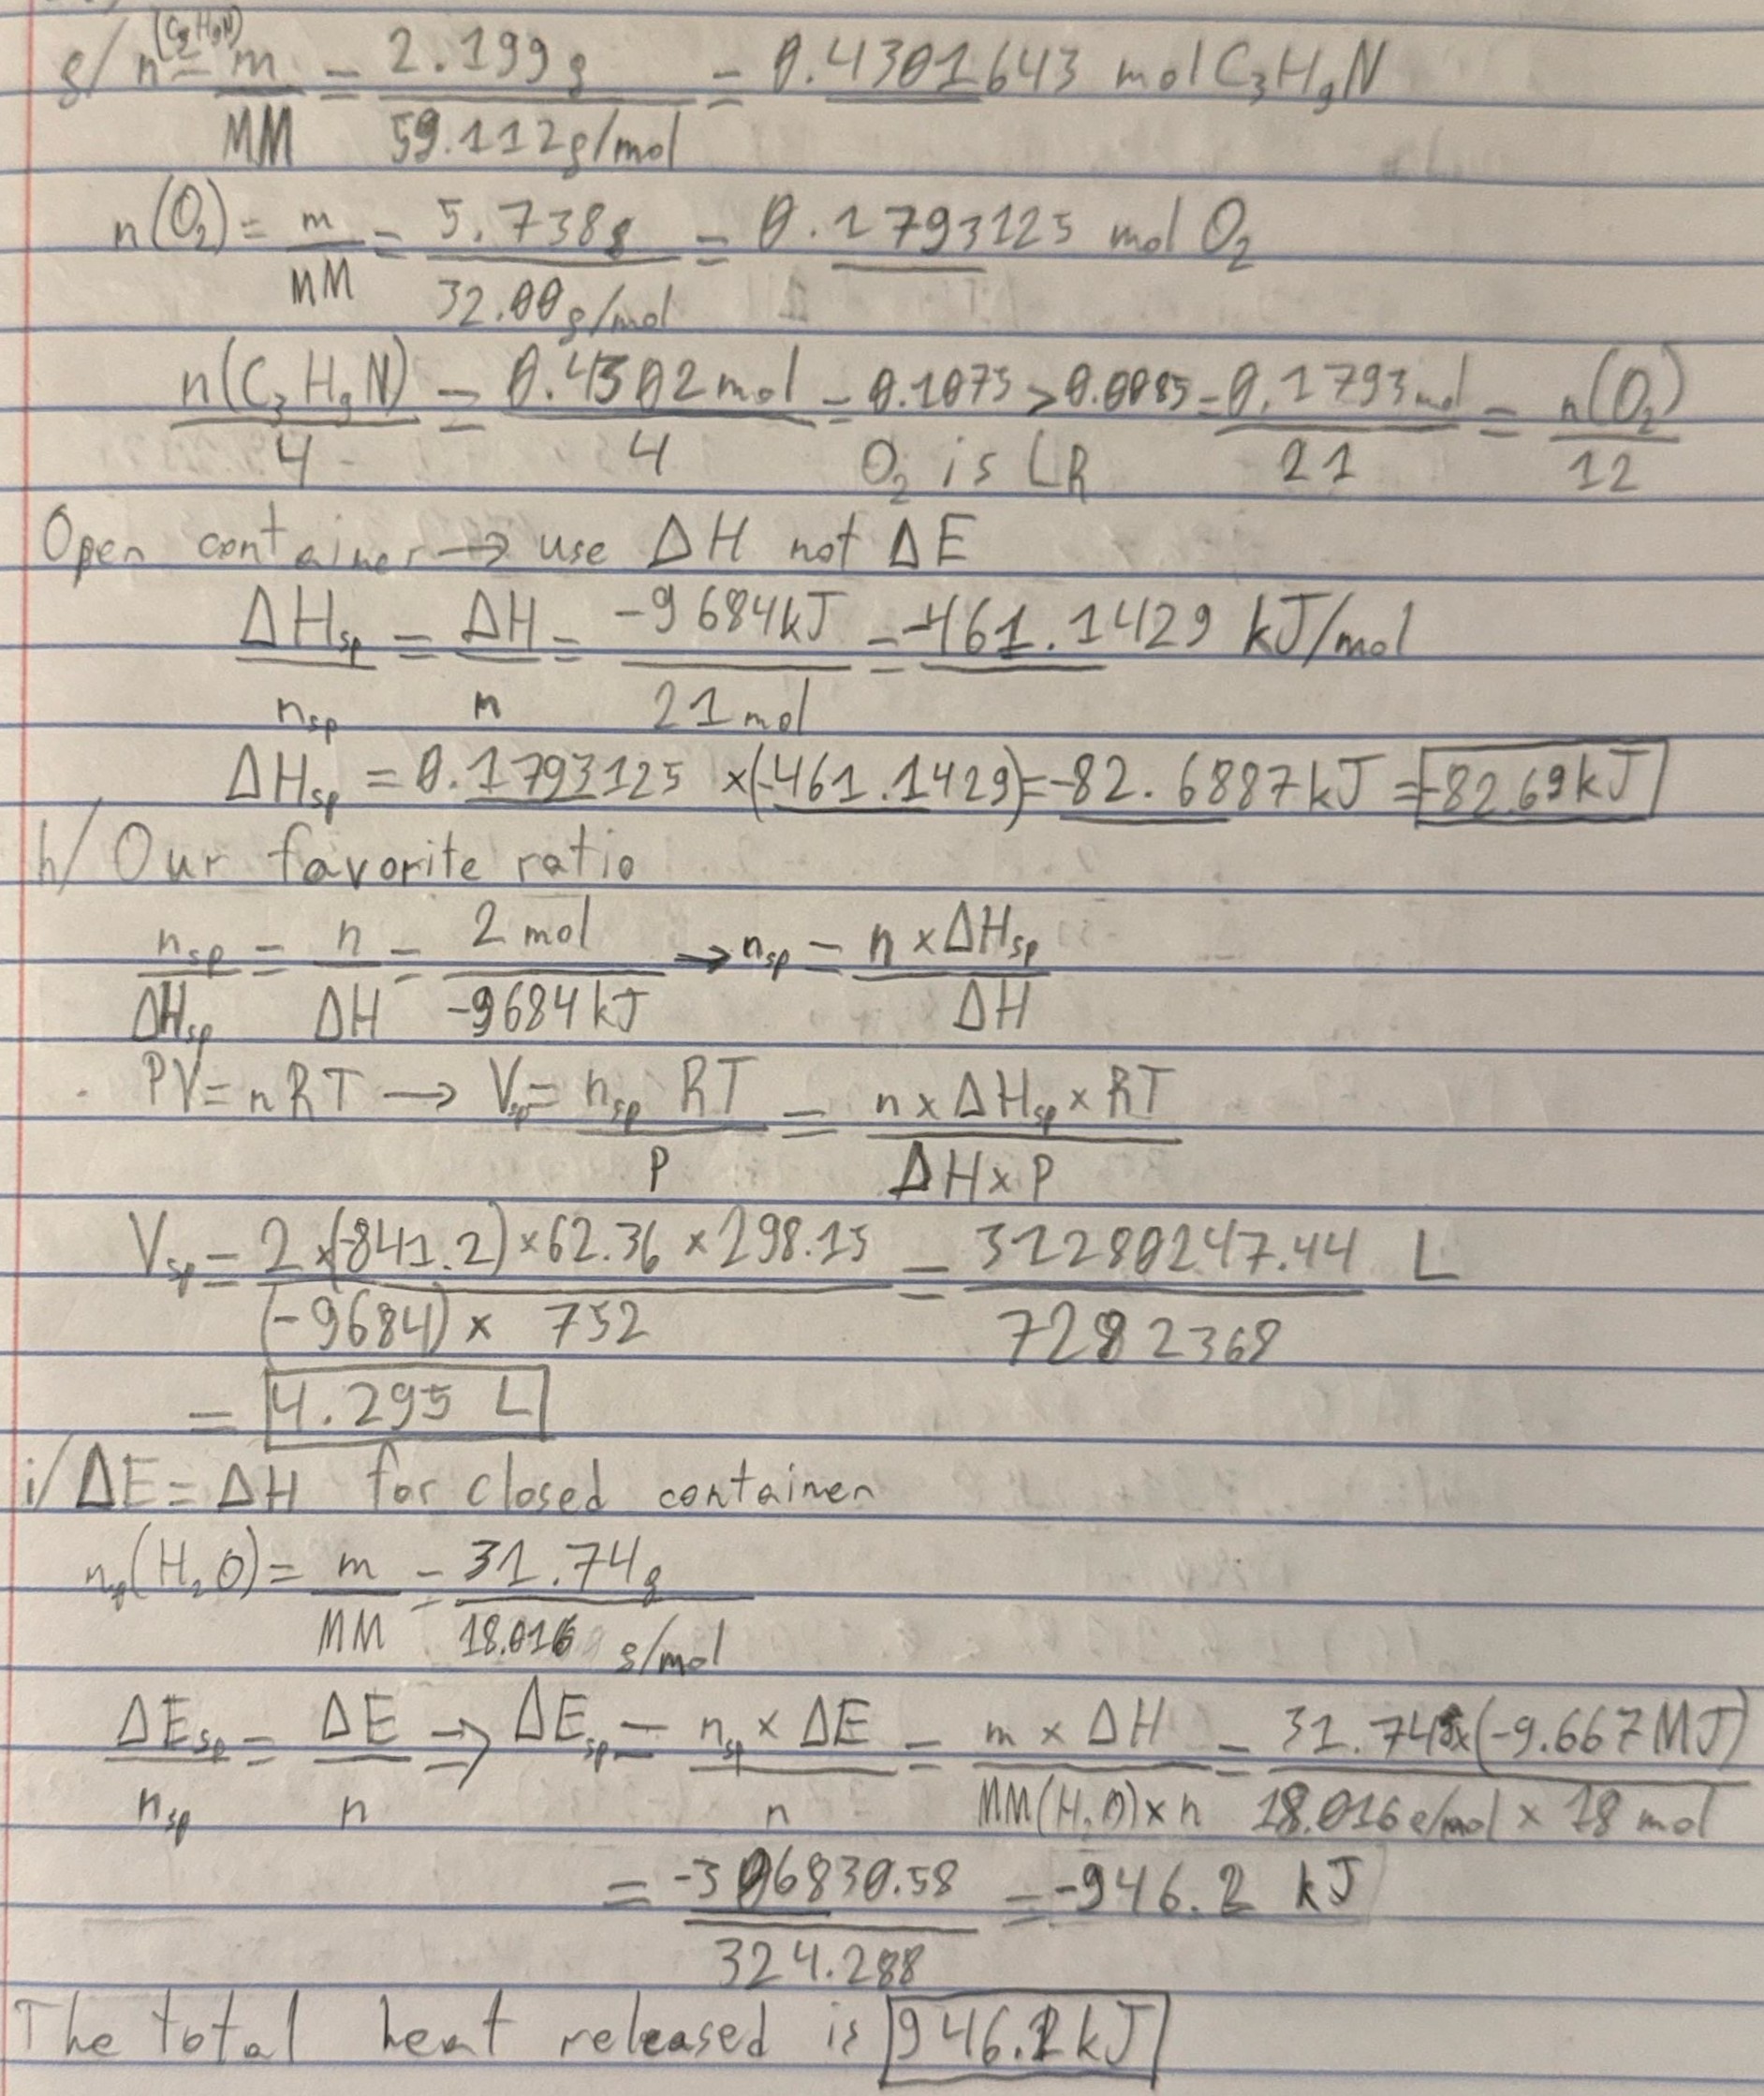 g/ n(C₃H₉N) = m/MM = 2.199g / 59.112g/mol = 0.4301643 mol C₃H₉N
n(O₂) = m/MM = 5.738g / 32.00g/mol = 0.1793125 mol O₂
n(C₃H₉N)/4 = 0.4302mol/4 = 0.1075 > 0.0085 = 0.1793mol/21 = n(O₂)/12
O₂ is LR
Open container → use ΔH not ΔE
ΔHsp/nsp = ΔH/n = -9684kJ/21mol = -461.1429 kJ/mol
ΔHsp = 0.1793125 ×(-461.1429)=-82.6887kJ = -82.69kJ
h/ Our favorite ratio
nsp/ΔHsp = n/ΔH = 2 mol/-9684kJ → nsp = n×ΔHsp/ΔH
PV=nRT → Vsp = nsp RT/P = n×ΔHsp×RT/ΔH×P
Vsp = 2×(-841.2)×62.36×298.15/(-9684)× 752 = 31280247.44/7282368 L
= 4.295 L
i/ ΔE=ΔH for closed container
nsp(H₂O)= m/MM = 31.74g/18.016 g/mol
ΔEsp/nsp = ΔE/n ⇒ ΔEsp = nsp×ΔE/n = m×ΔH/MM(H₂O)×n = 31.74g×(-9.667MJ)/18.016g/mol × 18 mol
= -306830.58/324.288 = -946.2 kJ
The total heat released is 946.2kJ